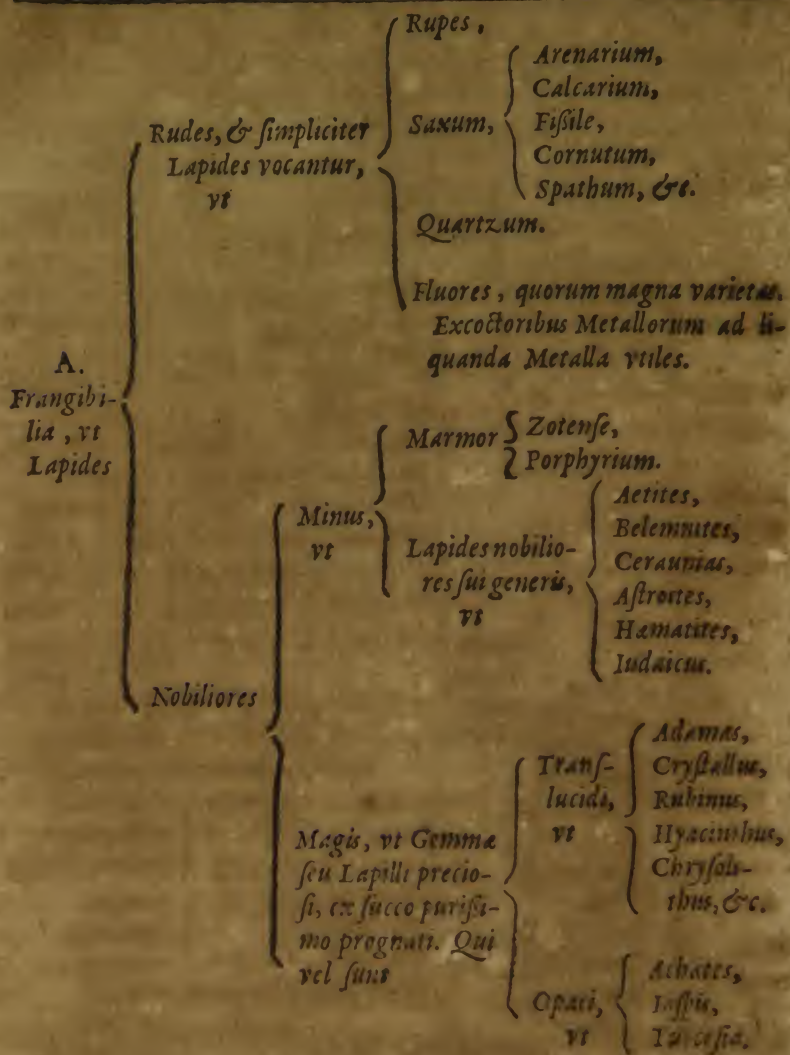 Rupes,
Rudes, & ſimpliciter
Lapides vocantur,
vt
Saxum,
Arenarium,
Calcarium,
Fißile,
Cornutum,
Spathum, &c.
Quartzum.
Fluores, quorum magna varietas.
Excoctoribus Metallorum ad li-
quanda Metalla vtiles.
A.
Frangibi-
lia, vt
Lapides
Nobiliores
Minus,
vt
Marmor
Zotenſe,
Porphyrium.
Lapides nobilio-
res ſui generis,
vt
Aetites,
Belemnites,
Ceraunias,
Aſtroites,
Hæmatites,
Iudaicus.
Magis, vt Gemmæ
ſeu Lapilli precio-
ſi, ex ſucco purißi-
mo prognati. Qui
vel ſunt
Tranſ-
lucidi,
vt
Adamas,
Cryſtallus,
Rubinus,
Hyacinthus,
Chryſoli-
thus, &c.
Opaci,
vt
Achates,
Iaſpis,